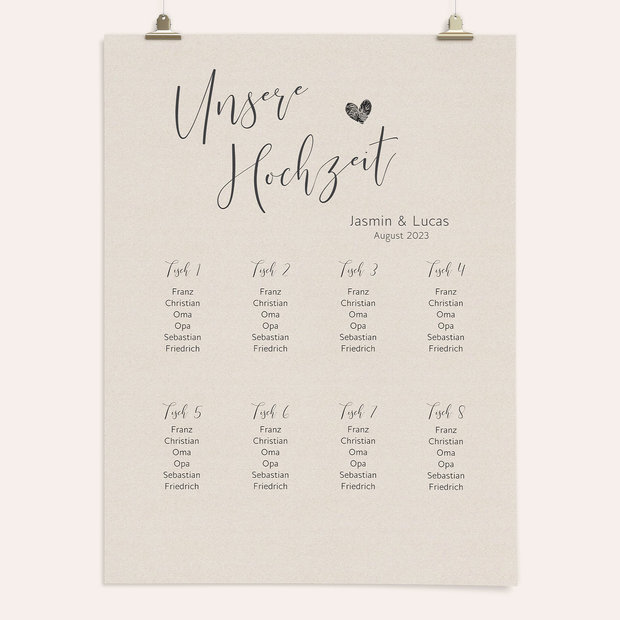 Unsere
Hochzeit
Jasmin & Lucas
August 2023
Tisch 1 Tisch 2 Tisch 3 Tisch 4
Franz Franz Franz Franz
Christian Christian Christian Christian
Oma Oma Oma Oma
Opa Opa Opa Opa
Sebastian Sebastian Sebastian Sebastian
Friedrich Friedrich Friedrich Friedrich
Tisch 5 Tisch 6 Tisch 7 Tisch 8
Franz Franz Franz Franz
Christian Christian Christian Christian
Oma Oma Oma Oma
Opa Opa Opa Opa
Sebastian Sebastian Sebastian Sebastian
Friedrich Friedrich Friedrich Friedrich